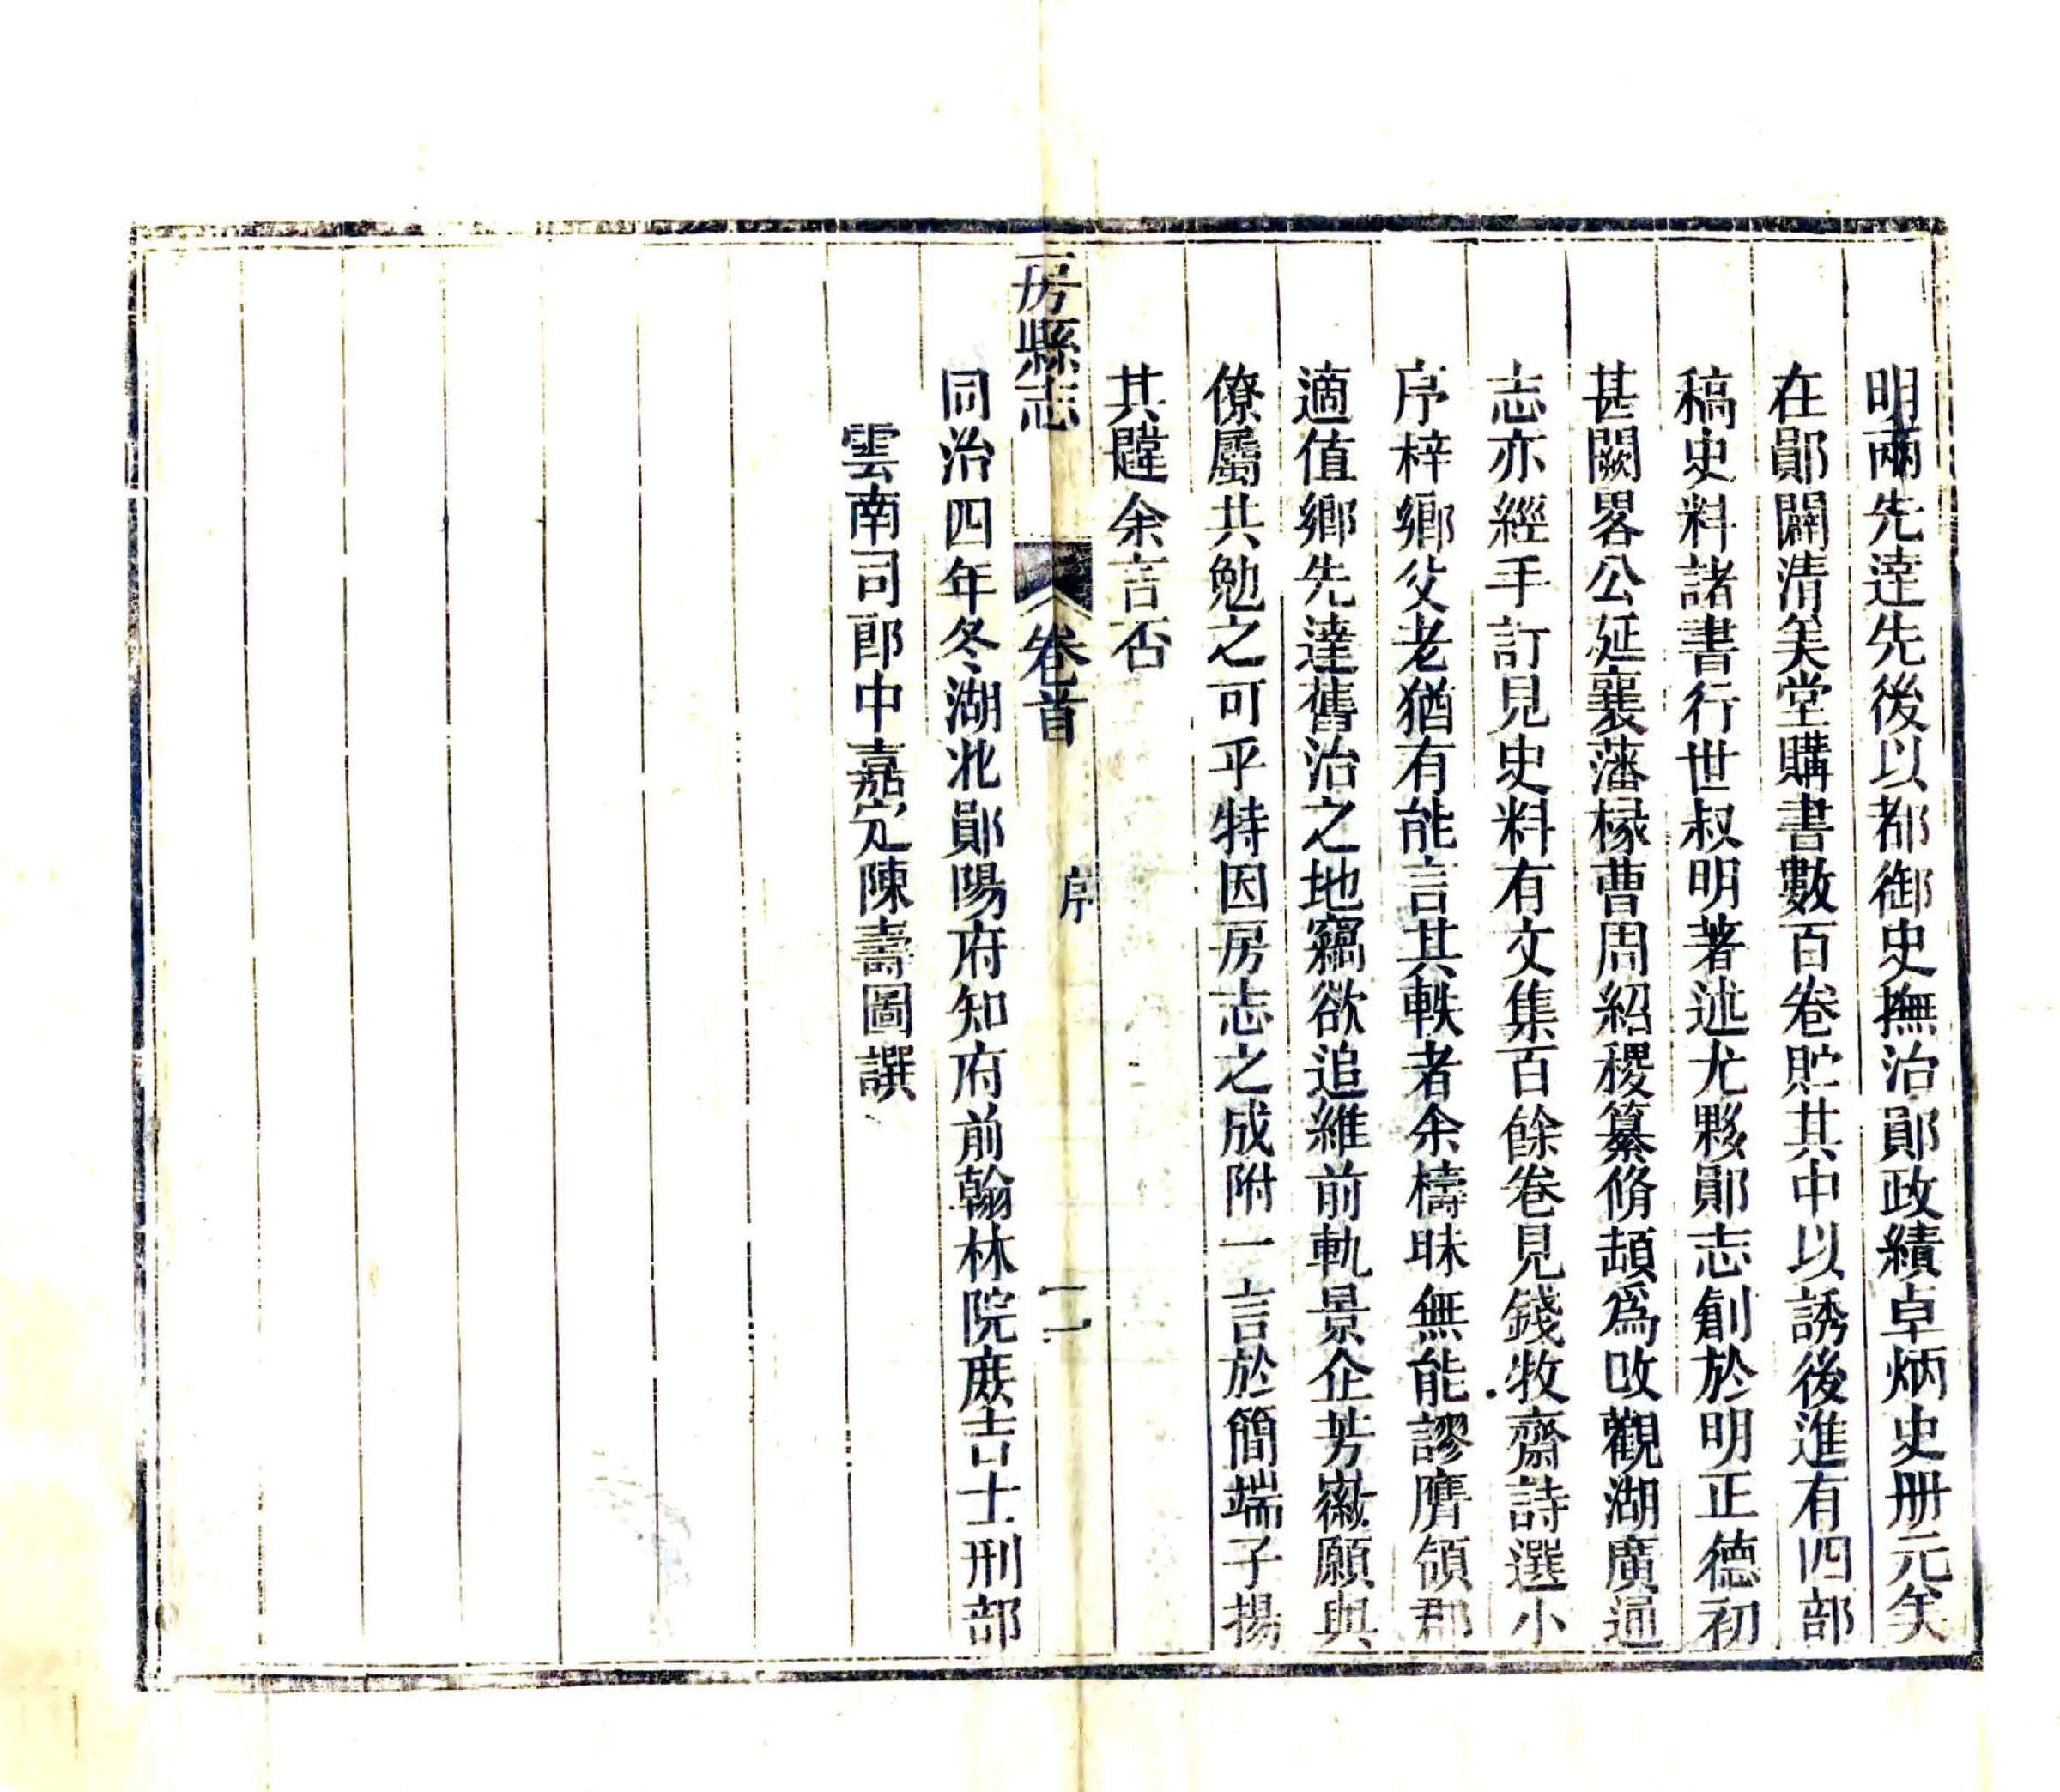 明兩先達先後以都御史撫治鄖政績卓炳史册元矣
在鄖闢清美堂購書數百卷貯其中以誘後進有四部
稿史料諸書行世叔明著述尤夥鄖志創於明正德初
甚闕畧公延襄藩椽曹周紹稷纂脩頡爲攺觀湖廣通
志亦經手訂見史料有文集百餘卷見錢牧齋詩選小
序梓鄉父老猶有能言其軼者余檮昧無能謬膺領郡
適值鄉先達舊治之地竊欲追維前軌景企芳徽願與
僚屬共勉之可乎特因房志之成附一言於簡端子揚
其韙余言否
房縣志 卷首 序 二
同治四年冬湖北鄖陽府知府前翰林院庶吉士刑部
雲南司郎中嘉定陳壽圖譔